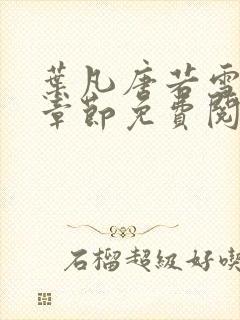 葉凡唐若雪
章節免費閱
石榴超級好喫